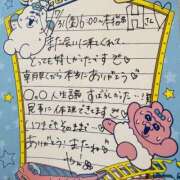 /31(金)6:00~本指名 Hさん
また会いに来てくれて
とっても嬉しかったです
朝早くから本当にありがとう
〇〇〇人生論 すばらしかった…!
見事に体現できてます
いつまでもそのままで…
ありがとう! またね